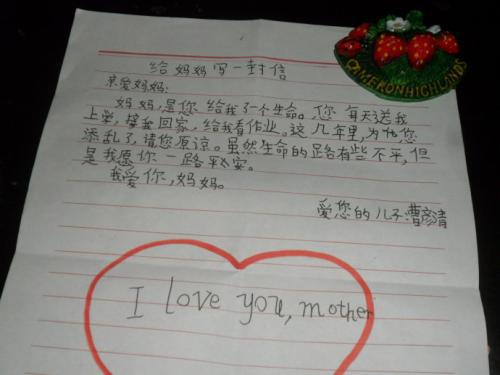 给妈妈写一封信
亲爱妈妈:
妈妈,是您给我了一个生命。您每天送我
上学,接我回家,给我看作业。这几年里,为给您
添乱了,请您原谅。虽然生命的路有些不平,但
是我愿你一路平安。
我爱你,妈妈。
爱您的儿子:曹彦清
I love you, mother
CAMERONHIGHLANDS